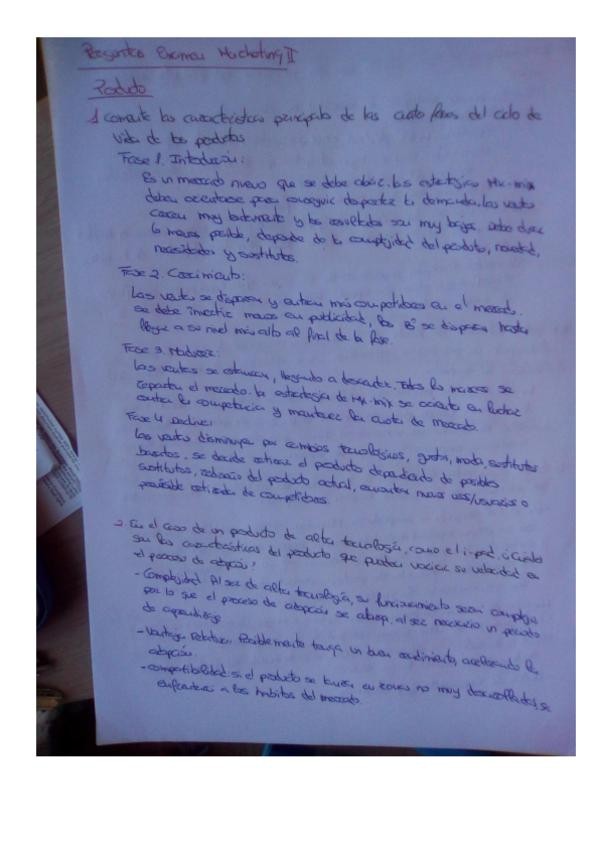 Preguntas Examen Marketing II
Producto
1 Comente las características principales de las cuatro fases del ciclo de
vida de los productos
Fase 1. Introducción:
Es un mercado nuevo que se debe abrir. Las estrategias Mk-mix
deben orientarse para conseguir despertar la demanda. Las ventas
crecen muy lentamente y los resultados son muy bajos. Debe durar
lo menos posible, depende de la complejidad del producto, novedad,
necesidades y sustitutos.
Fase 2. Crecimiento:
Las ventas se disparan y entran más competidores en el mercado.
se debe invertir menos en publicidad, los Bº se disparan hasta
llegar a su nivel más alto al final de la fase.
Fase 3. Madurez:
Las ventas se estancan, llegando a descender. Todas las marcas se
reparten el mercado. La estrategia de Mk-mix se orienta en luchar
contra la competencia y mantener la cuota de mercado.
Fase 4. Declive:
Las ventas disminuyen por cambios tecnológicos, gustos, moda, sustitutos
baratos. se decide retirar el producto dependiendo de posibles
sustitutos, rediseño del producto actual, encontrar nuevos usos/usuarios o
previsible retirada de competidores.
2. En el caso de un producto de alta tecnología, como el i-pad, ¿cuáles
son las características del producto que pueden variar su velocidad en
el proceso de adopción?
- Complejidad. Al ser de alta tecnología, su funcionamiento será complejo
por lo que el proceso de adopción se alarga, al ser necesario un periodo
de aprendizaje
- Ventaja Relativa. Posiblemente tenga un buen rendimiento, acelerando la
adopción.
- compatibilidad: si el producto se lanza en zonas no muy desarrolladas, se
enfrentara a los hábitos del mercado.